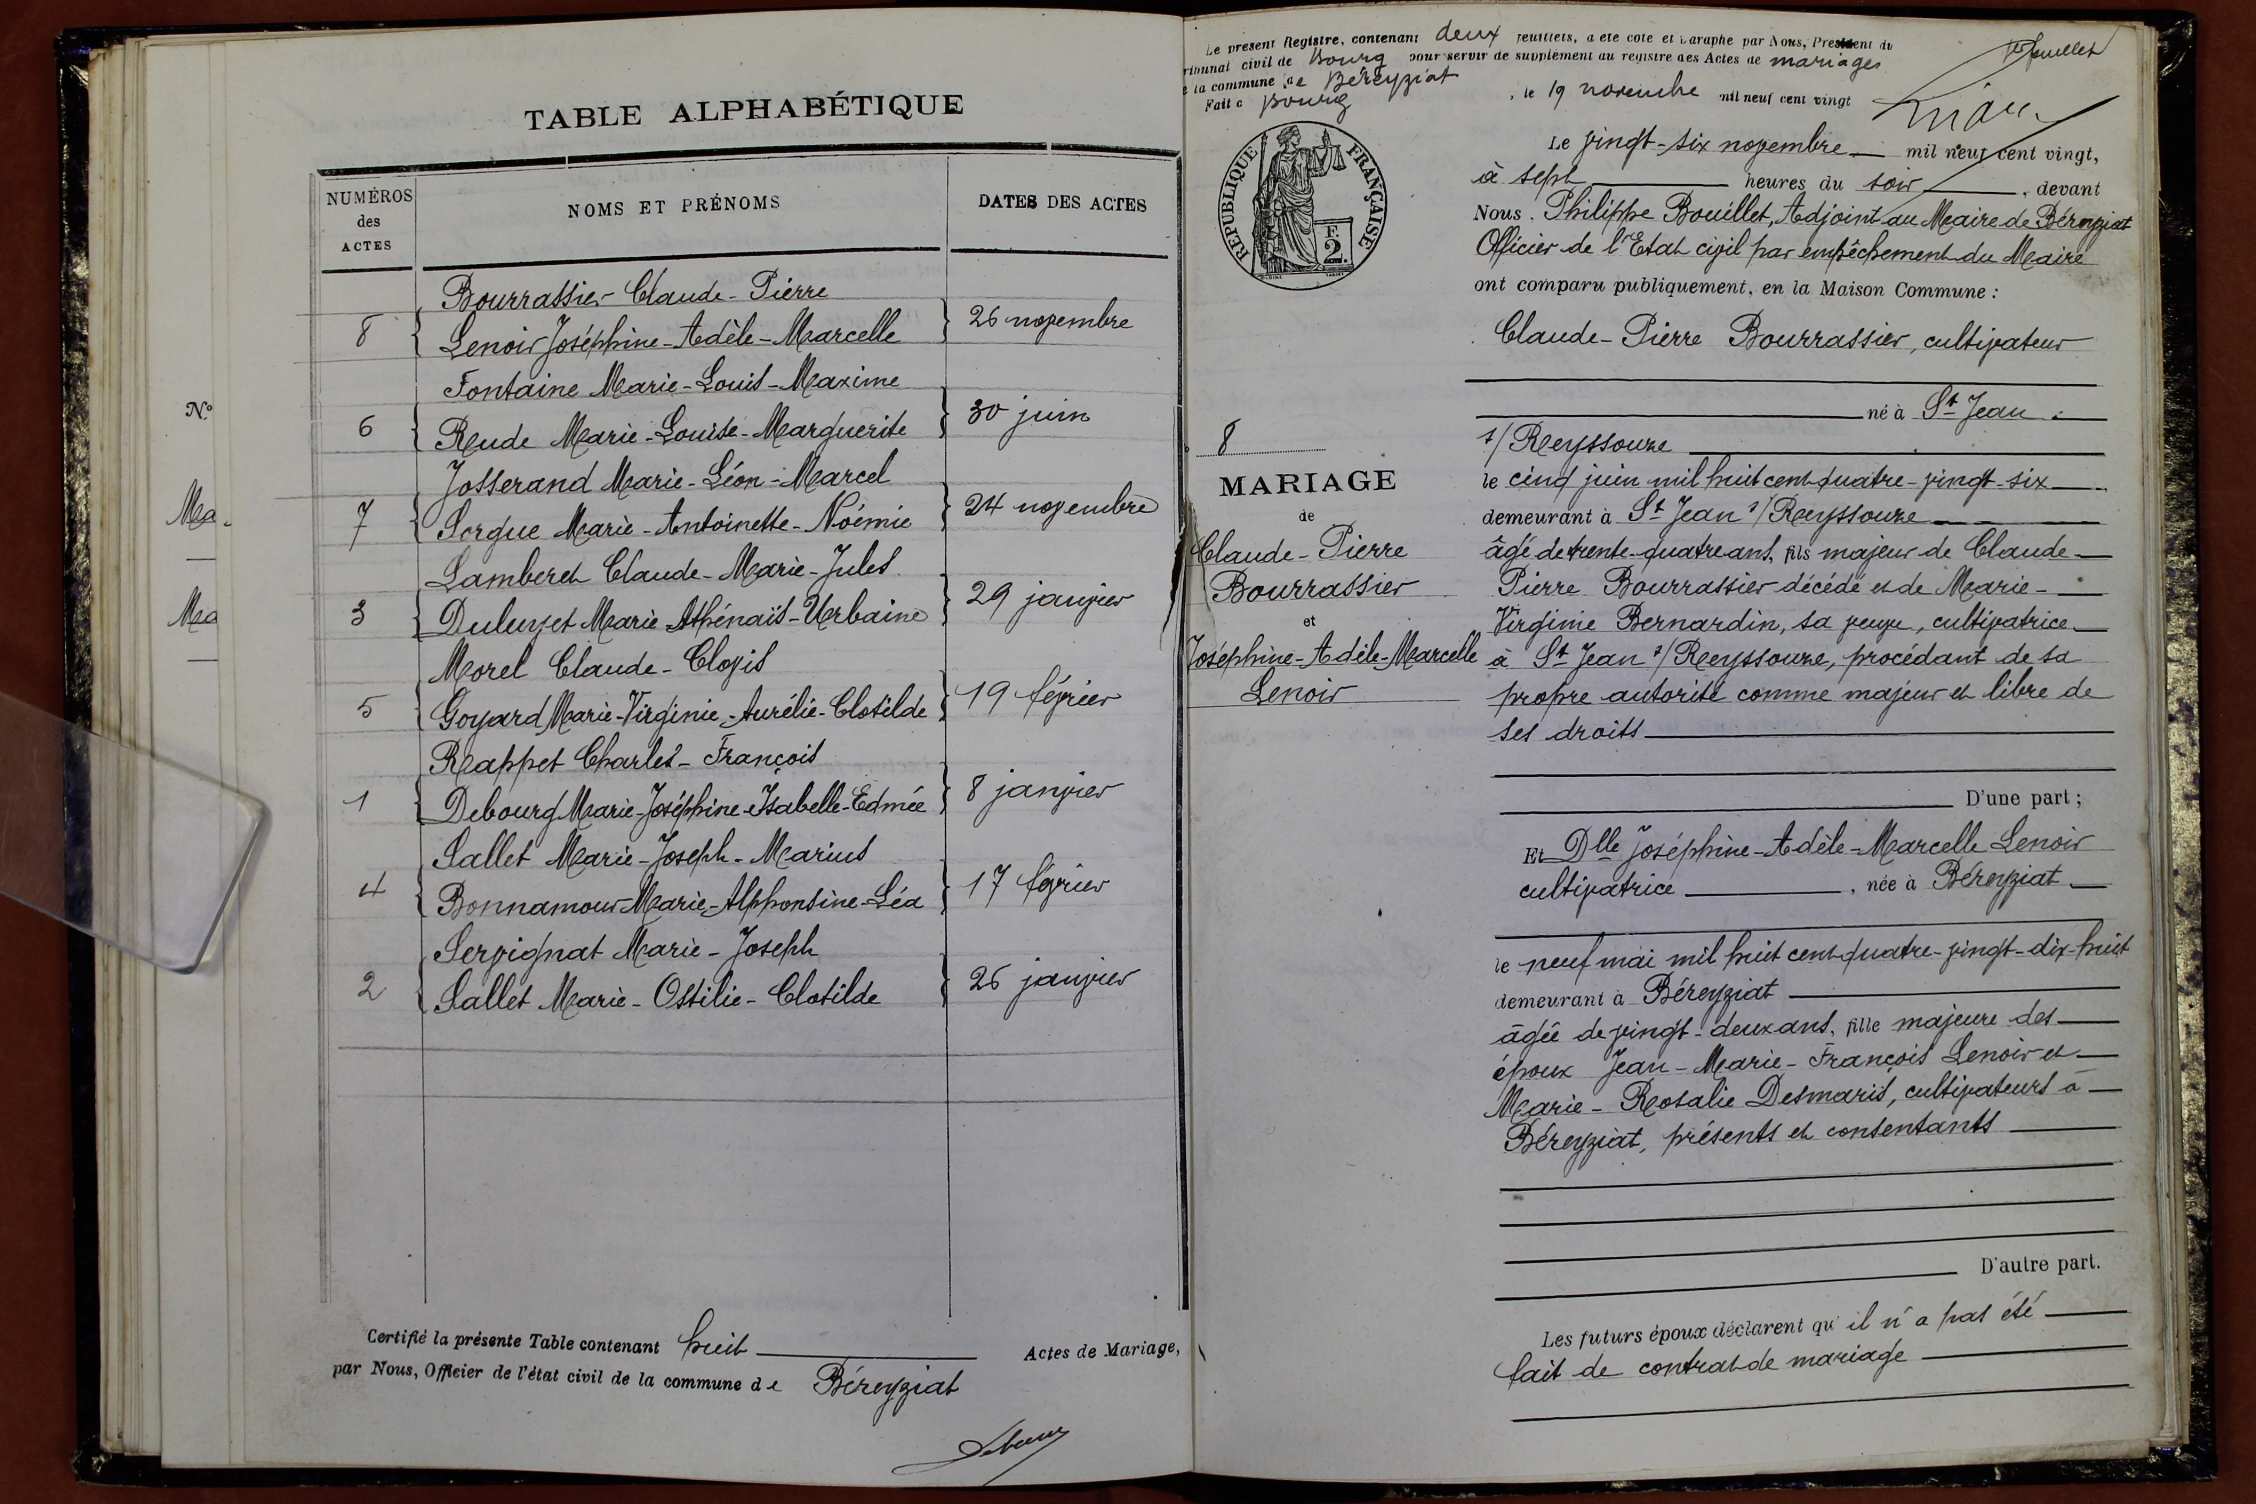 TABLE ALPHABÉTIQUE
NUMÉROS
des
ACTES
NOMS ET PRÉNOMS
DATES DES ACTES
Bourrassier Claude-Pierre
8
Lenoir Joséphine-Adèle-Marcelle
26 novembre
Fontaine Marie-Louis-Maxime
6
Rude Marie-Louise-Marguerite
30 juin
Josserand Marie-Léon-Marcel
7
Sorgue Marie-Antoinette-Noémie
24 novembre
Lamberet Claude-Marie-Jules
3
Marie-Athénaïs-Urbaine
29 janvier
Morel Claude-Clovis
5
Goyard Marie-Virginie-Aurélie-Clotilde
19 février
Rappet Charles-François
1
Debourg Marie-Joséphine-Isabelle-Edmée
8 janvier
Sallet Marie-Joseph-Marius
4
Bonnamour Marie-Alphonsine-Léa
17 février
Servignat Marie-Joseph
2
Sallet Marie-Ostilie-Clotilde
26 janvier
Certifié la présente Table contenant huit Actes de Mariage,
par Nous, Officier de l'état civil de la commune de Béreyziat
N°
Ma
Ma
Le présent Registre, contenant deux feuillets, a été coté et paraphé par Nous, Président du
tribunal civil de Bourg pour servir de supplément au registre des Actes de mariages
de la commune de Béreyziat
Fait à Bourg, le 19 novembre mil neuf cent vingt
1er feuillet
RÉPUBLIQUE FRANÇAISE
F.
2
Le vingt-six novembre mil neuf cent vingt,
à sept heures du soir, devant
Nous. Philippe Bouillet, Adjoint au Maire de Béreyziat
Officier de l'Etat civil par empêchement du Maire
ont comparu publiquement, en la Maison Commune :
Claude-Pierre Bourrassier, cultivateur
né à St Jean
s/ Reyssouze
le cinq juin mil huit cent quatre-vingt-six
demeurant à St Jean s/ Reyssouze
âgé de trente-quatre ans, fils majeur de Claude-
Pierre Bourrassier décédé et de Marie-
Virginie Bernardin, sa veuve, cultivatrice
à St Jean s/ Reyssouze, procédant de sa
propre autorité comme majeur et libre de
ses droits
D'une part ;
8
MARIAGE
de
Claude-Pierre
Bourrassier
et
Joséphine-Adèle-Marcelle
Lenoir
Et Dlle Joséphine-Adèle-Marcelle Lenoir
cultivatrice, née à Béreyziat
le neuf mai mil huit cent quatre-vingt-dix-huit
demeurant à Béreyziat
âgée de vingt-deux ans, fille majeure des
époux Jean-Marie-François Lenoir et
Marie-Rosalie Desmaris, cultivateurs à
Béreyziat, présents et consentants
D'autre part.
Les futurs époux déclarent qu'il n'a pas été
fait de contrat de mariage